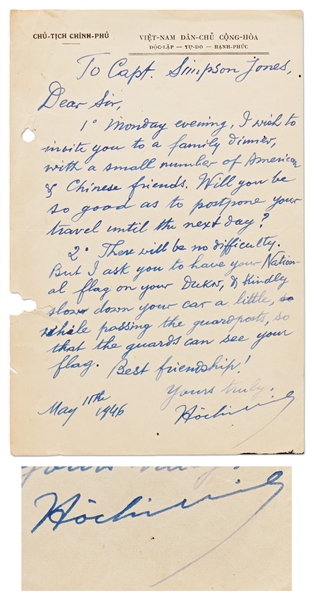 CHỦ-TỊCH CHÍNH-PHỦ
VIỆT-NAM DÂN-CHỦ CỘNG-HÒA
ĐỘC-LẬP — TỰ-DO — HẠNH-PHÚC
To Capt. Simpson Jones,
Dear Sir,
1° Monday evening, I wish to
invite you to a family dinner,
with a small number of American
& Chinese friends. Will you be
so good as to postpone your
travel until the next day?
2° There will be no difficulty.
But I ask you to have your Nation-
al flag on your & kindly
slow down your car a little,
while passing the guardposts, so
that the guards can see your
flag. Best friendship!
Yours truly.
May 11th 1946
Hồchiminh
Yours truly.
Hồchiminh